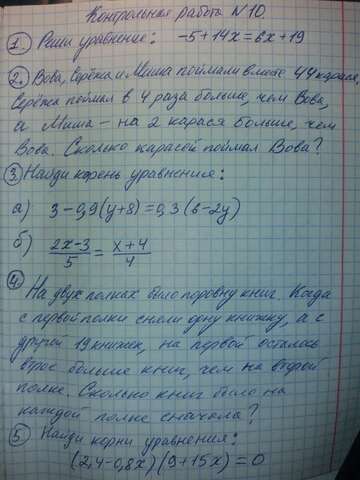 Контрольная работа №10.
1. Реши уравнение: -5+14x=6x+19
2. Вова, Серёжа и Миша поймали вместе 44 карася,
Серёжа поймал в 4 раза больше, чем Вова,
а Миша – на 2 карася больше, чем
Вова. Сколько карасей поймал Вова?
3. Найди корень уравнения:
а) 3-0,9(y+8)=0,3(6-2y)
б) 2x-3/5 = x+4/4
4.
На двух полках было поровну книг. Когда
с первой полки сняли одну книжку, а с
другой 19 книжек, на первой осталось
втрое больше книг, чем на второй
полке. Сколько книг было на
каждой полке сначала?
5. Найди корни уравнения:
(2,4-0,8x)(9+15x)=0